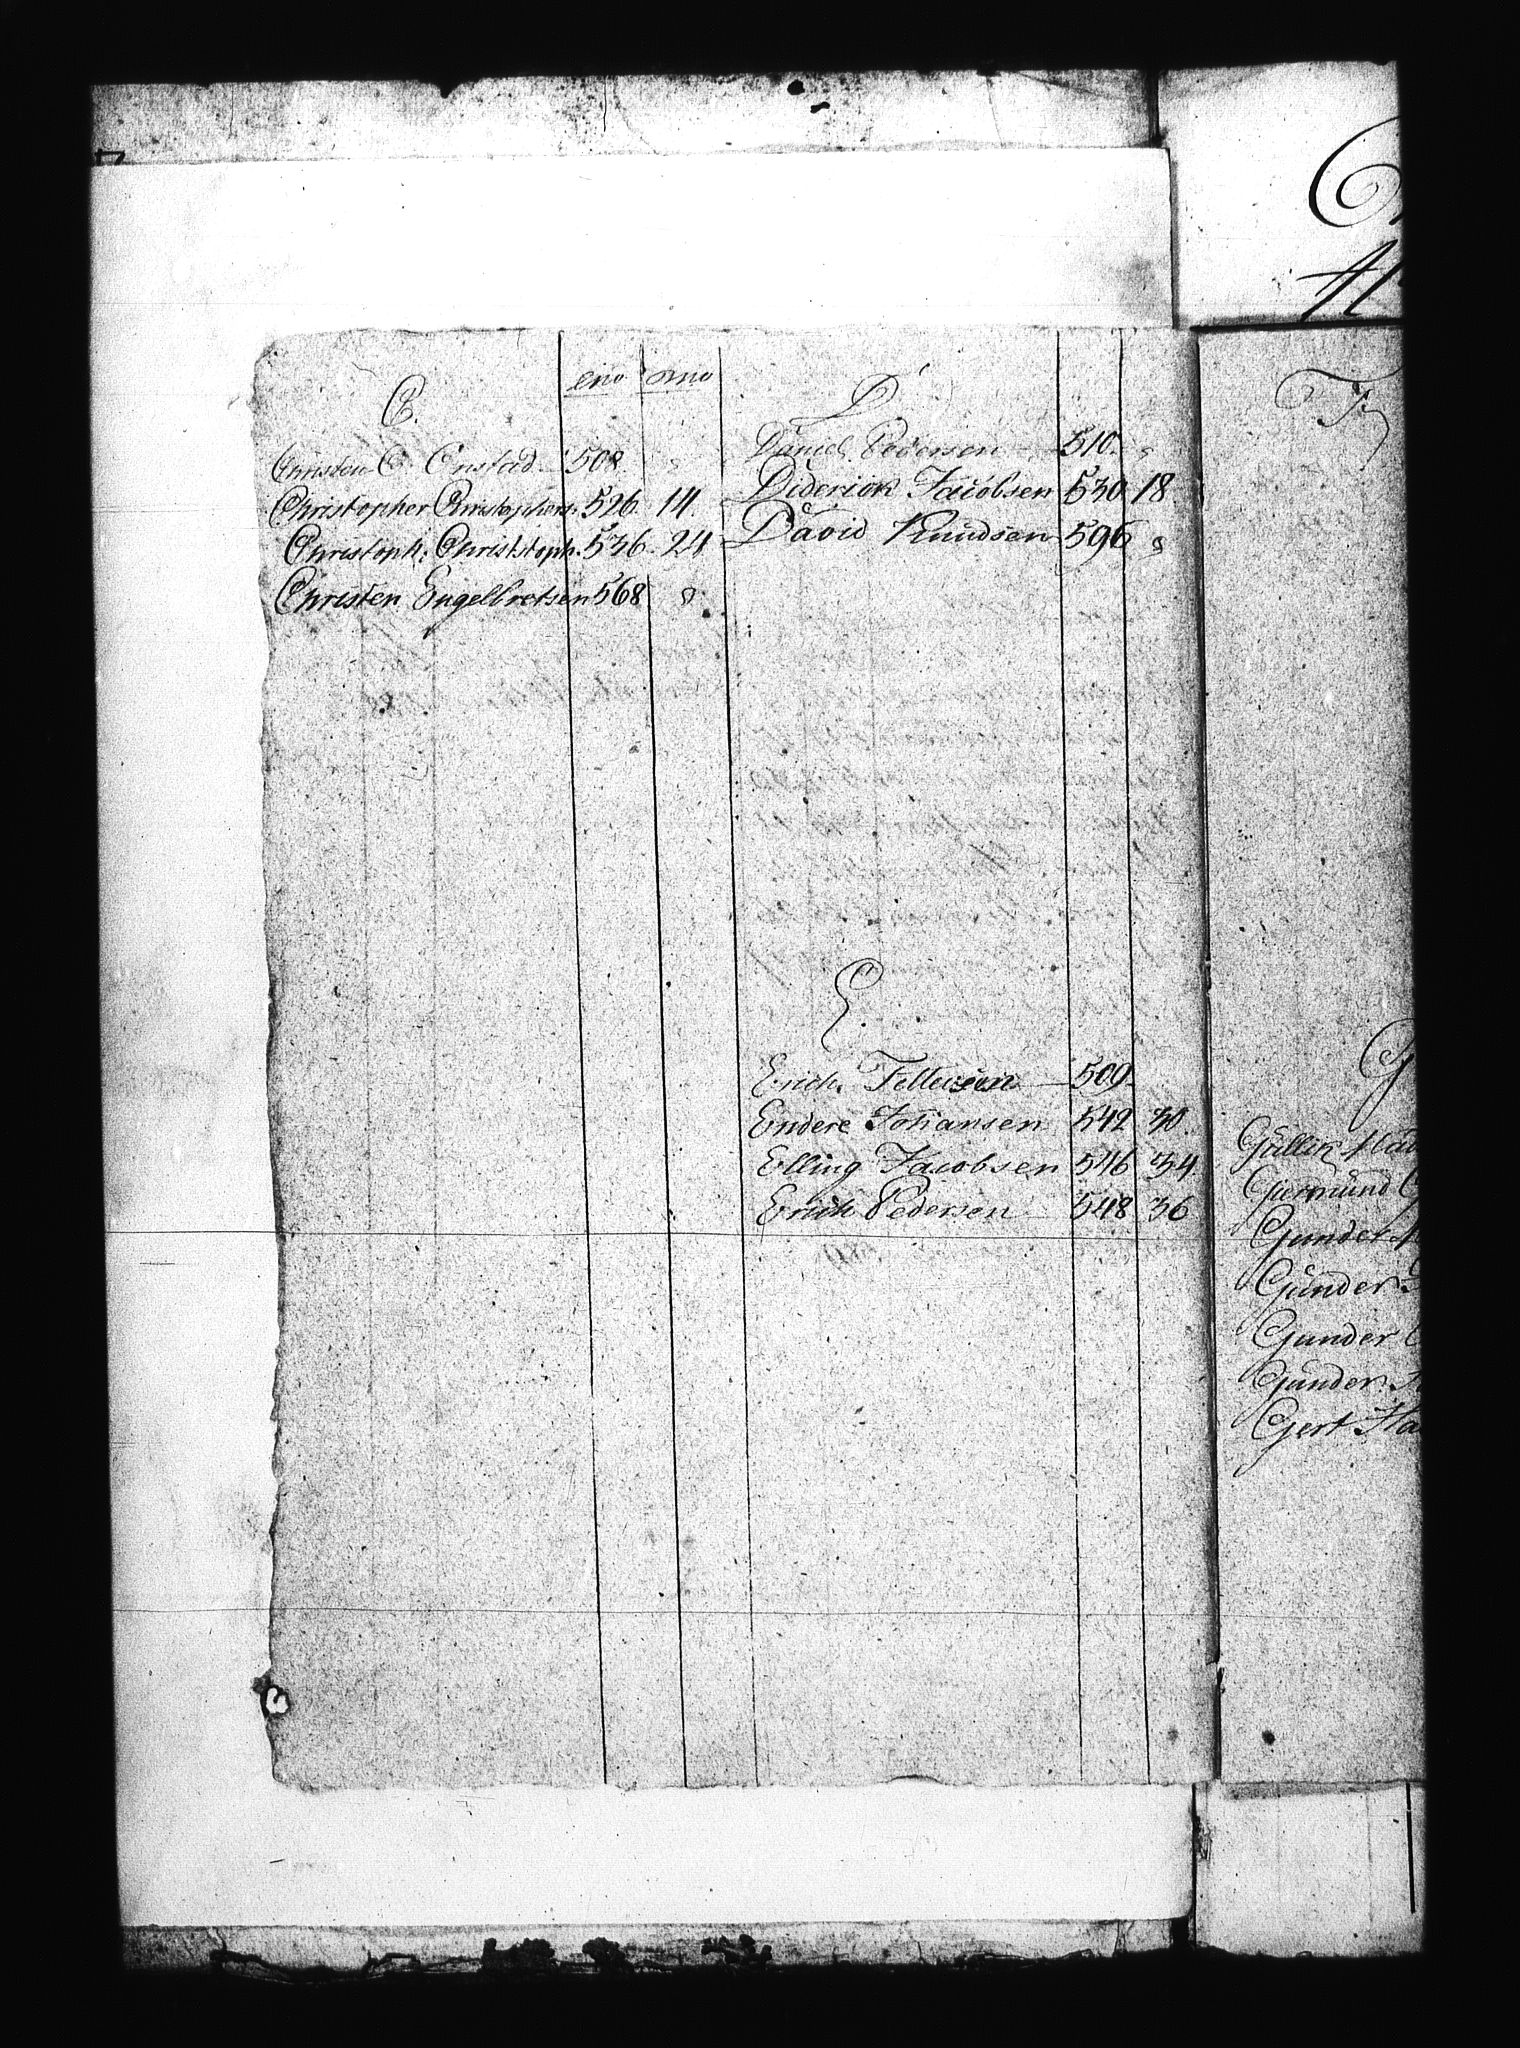 C.
Christen C. Onstad 508.
Christopher Christophers. 526. 14.
Christoph: Christstoph. 536. 24
Christen Engelbretsen 568
D.
Daniel Pedersen 510.
Diderick Jacobsen 530 18
David Knudsen 596
E.
Erich Tellevsen 509.
Endere Johansen 542 30.
Elling Jacobsen 546 34
Erich Pedersen 548 36
F
G
Gunder
Gunder
Gunder
Gunder
Gert